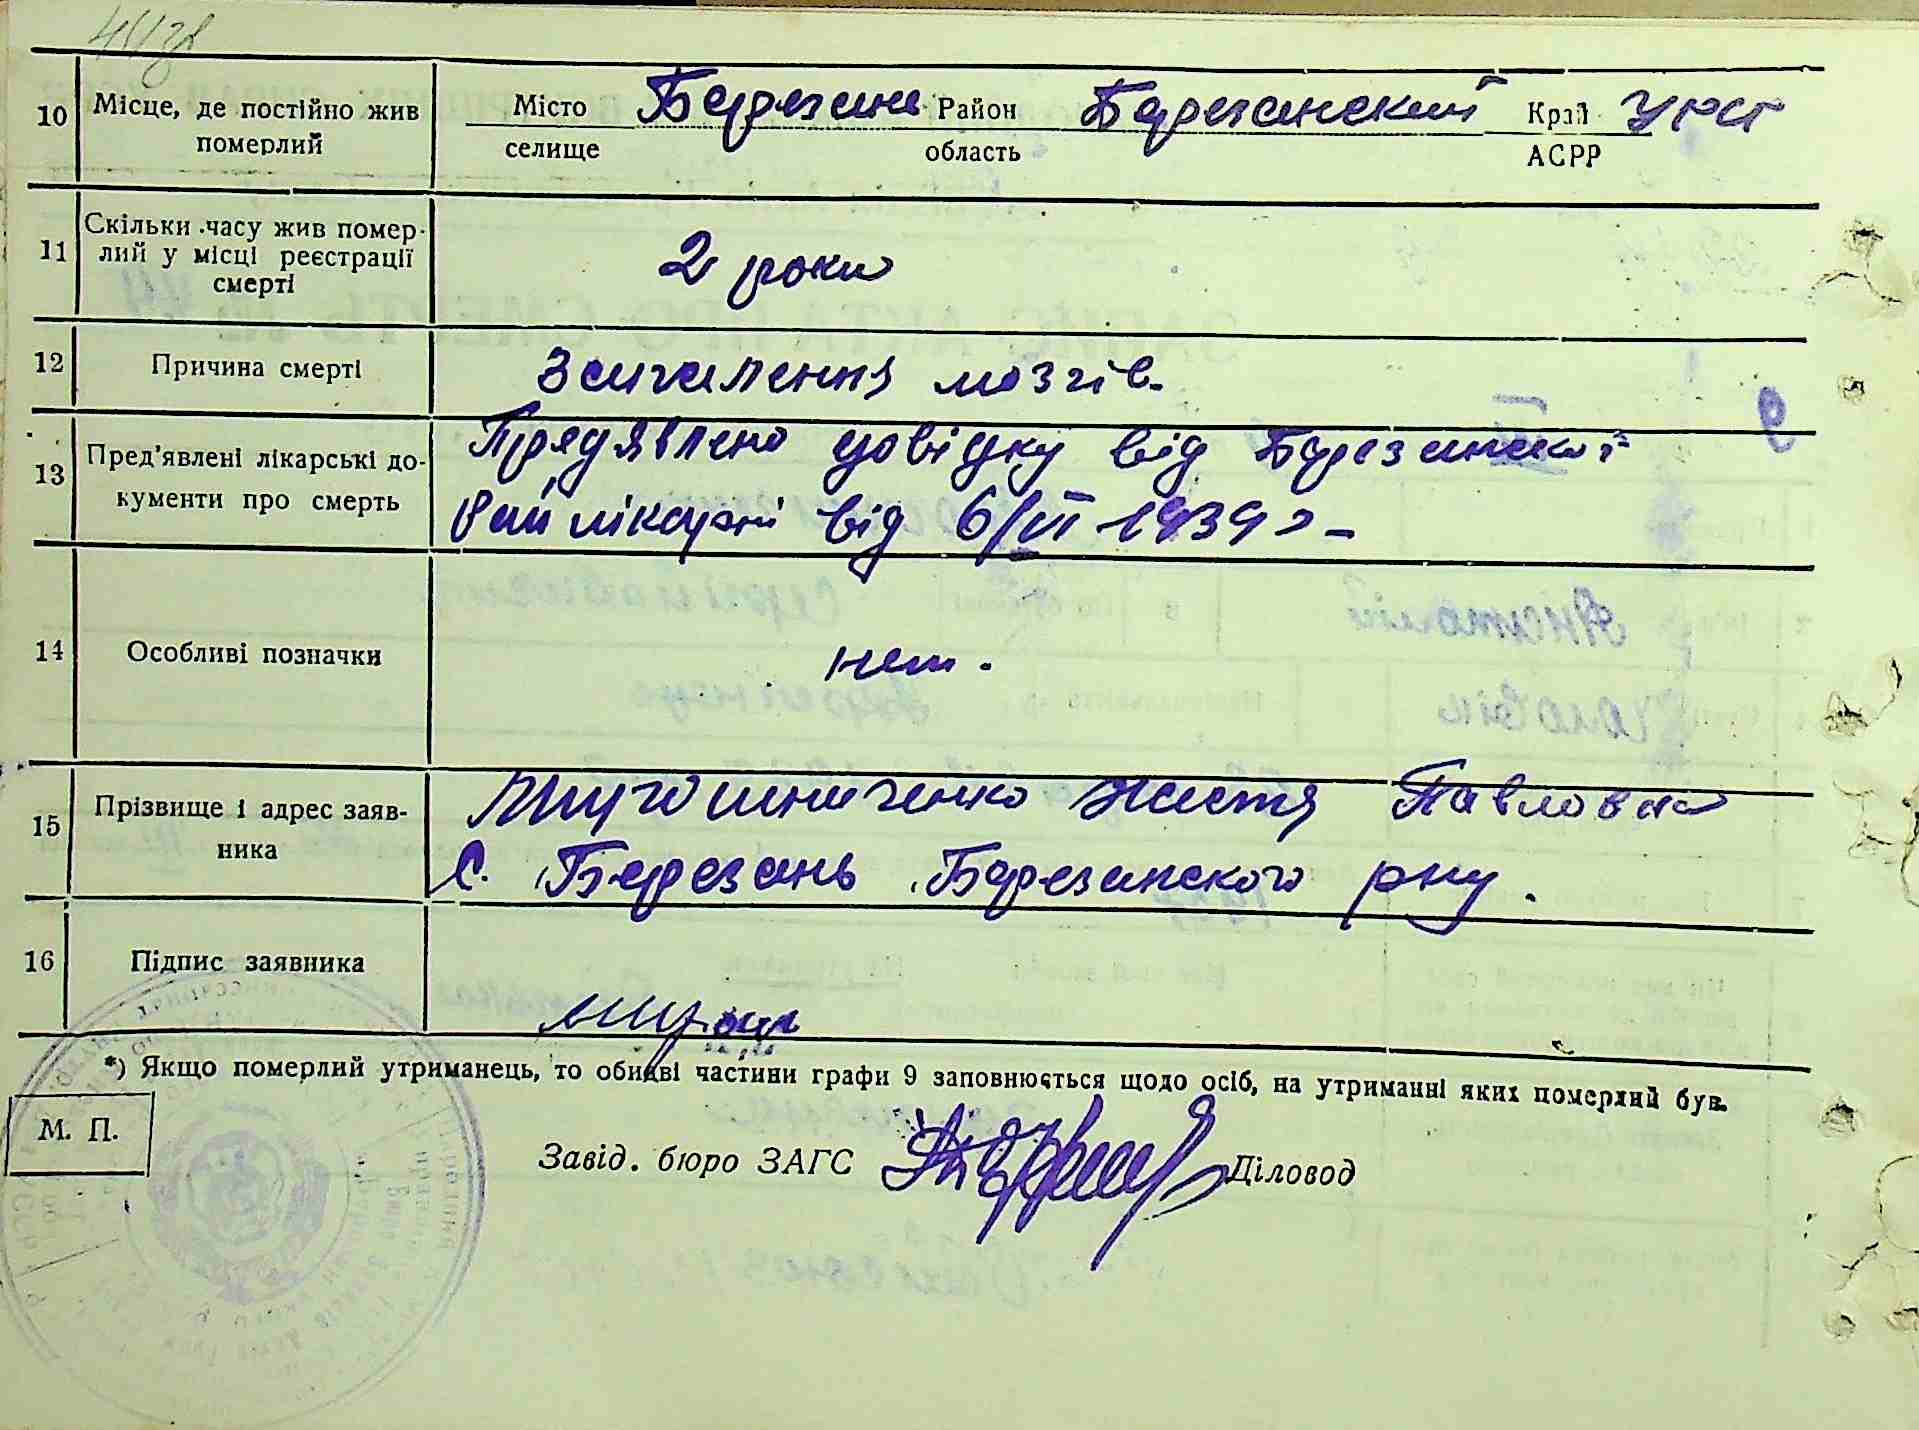 10
Місце, де постійно жив
померлий
Місто Березань Район Березанский Край УРСР
селище область АСРР
11
Скільки часу жив помер-
лий у місці реєстрації
смерті
2 роки
12
Причина смерті
Запалення мозгів.
13
Пред'явлені лікарські до-
кументи про смерть
Предявлено довідку від Березанской
Рай лікарні від 6/VI 1939 г-
14
Особливі позначки
нет.
15
Прізвище і адрес заяв-
ника
Настя Павловна
С. Березань Березанского рну.
16
Підпис заявника
*) Якщо померлий утриманець, то обидві частини графи 9 заповнюється щодо осіб, на утриманні яких померлий був.
М. П.
Завід. бюро ЗАГС Діловод